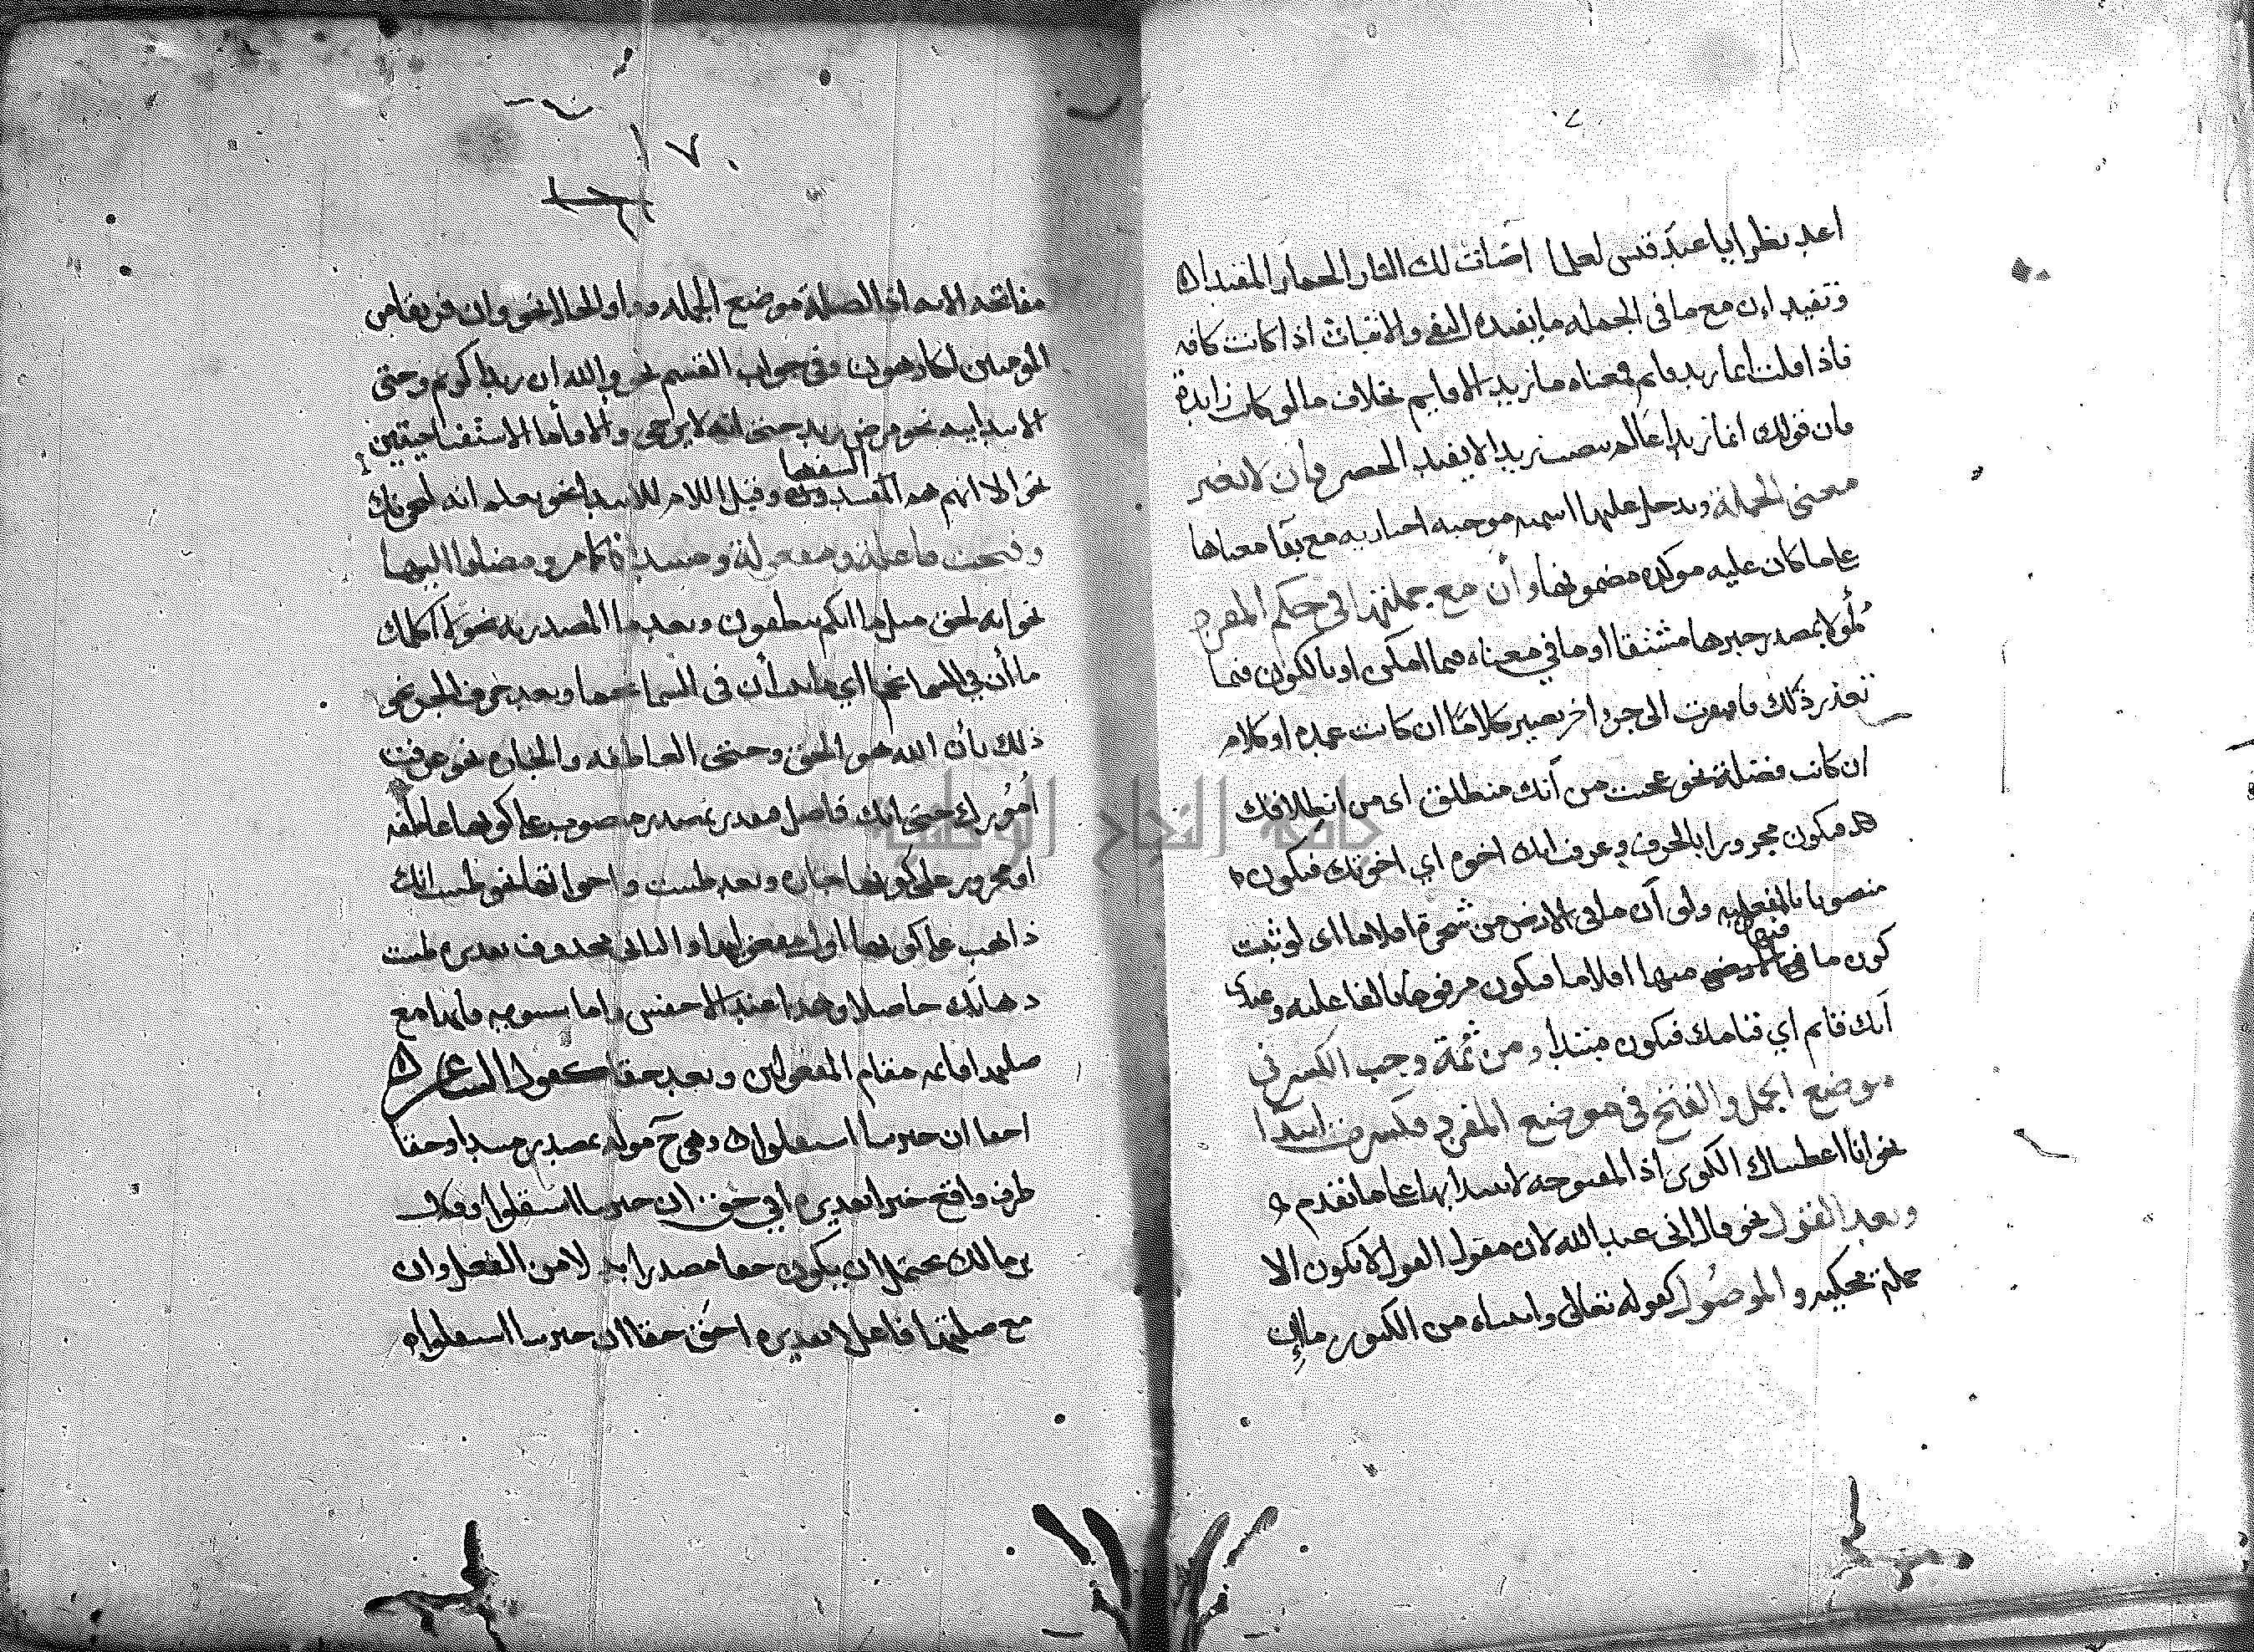 اعد نظرا يا عبد قيس لعلما اضات لك النار الحمار المقيدا
وتفيد ان مع ما في الجمله ما يفيده النفي والاثبات اذا كانت كافه
فاذا قلت انما زيد قايم فمعناه ما زيد الا قايم بخلاف ما لو كانت زايدة
فان قولك انما زيدا عالم بنصب زيدا لا يفيد الحصر وأن لا تغير
معنى الجملة وتدخل عليها اسميه موجبه اخباريه مع بقا معناها
على ما كان عليه موكده مضمونها وأن مع جملتها في حكم المفرد
لمؤلا بمصدر خبرها مشتقا او ما في معناه فيما امكن او بالكون فيما
تعذر ذلك فافتقرت الى جزو اخر يصير كلاما ان كانت عمده او كلام
ان كانت فضلة نحو عجبت من أنك منطلق اى من انطلاقك
فيكون مجرورا بالحرف وعرفت انك اخوم اي اخوتك فيكون
منصوبا بالمفعليه ولو أن ما في الارض من شجرة اقلاما اى لو ثبت
فيها
كون ما في الارض منها اقلاما فيكون مرفوعا بالفاعليه وعندى
أنك قايم اي قيامك فيكون مبتدأ ومن ثمة وجب الكسر في
موضع الجمل والفتح في موضع المفرد فكسرت ابتدا
نحو انا اعطيناك الكوثر اذ المفتوحه لا يبتدا بها على ما تقدم
وبعد القول نحو قال اني عبد الله لان مقول القول لا يكون الا
جملة محكيه والموصول كقوله تعالى واتيناه من الكنوز ما ان
١٧٠
مفاتحه الايه اذ الصلة موضع الجمله وواو الحال نحو وان فريقا من
المومنين لكارهون وفي جواب القسم نحو والله ان زيدا كريم وحتى
الابتداييه نحو مرض زيد حتى انه لا يرجى وألا وأما الاستفتاحيتين
السفها
نحو الا انهم هم المفسدون وقبل اللام للابتدا نحو يعلم انه لعونك
وفتحت فاعلة ومفعولة ومبتدا كامر ومضافا اليها
نحو انه لحق مثل ما انكم تنطقون وبعد ما المصدريه نحو لا اكلمك
ما أن في السما نجما اي ما ثبت أن في السما نجما وبعد حرف الجر نحو
ذلك بأن الله هو الحق وحتى العاطفه والجاره نحو عرفت
امورك حتى انك فاضل فيقدر بمصدر منصوب على كونها عاطفه
او مجرور على كونها جاره وبعد ظننت واخواتها نحو ظننت انك
ذاهب على كونها اول مفعوليها والثاني محذوف تقديره ظننت
ذهابك حاصلا وهذا عند الاخفش واما سيبويه فانها مع
صلتها قايمه مقام المفعولين وبعد حقا كقول الشاعر
احقا ان جيرتنا استقلوا وهي ح موله بمصدر مبتدا وحقا
ظرف واقع خبرا تقديره افي حق ان جيرتنا استقلوا وقال
بن مالك يحتمل ان يكون حقا مصدرا بدلا من الفعل وان
مع صلتها فاعلا تقديره احق حقا ان جيرتنا استقلوا
جامعة النجاح الوطنية